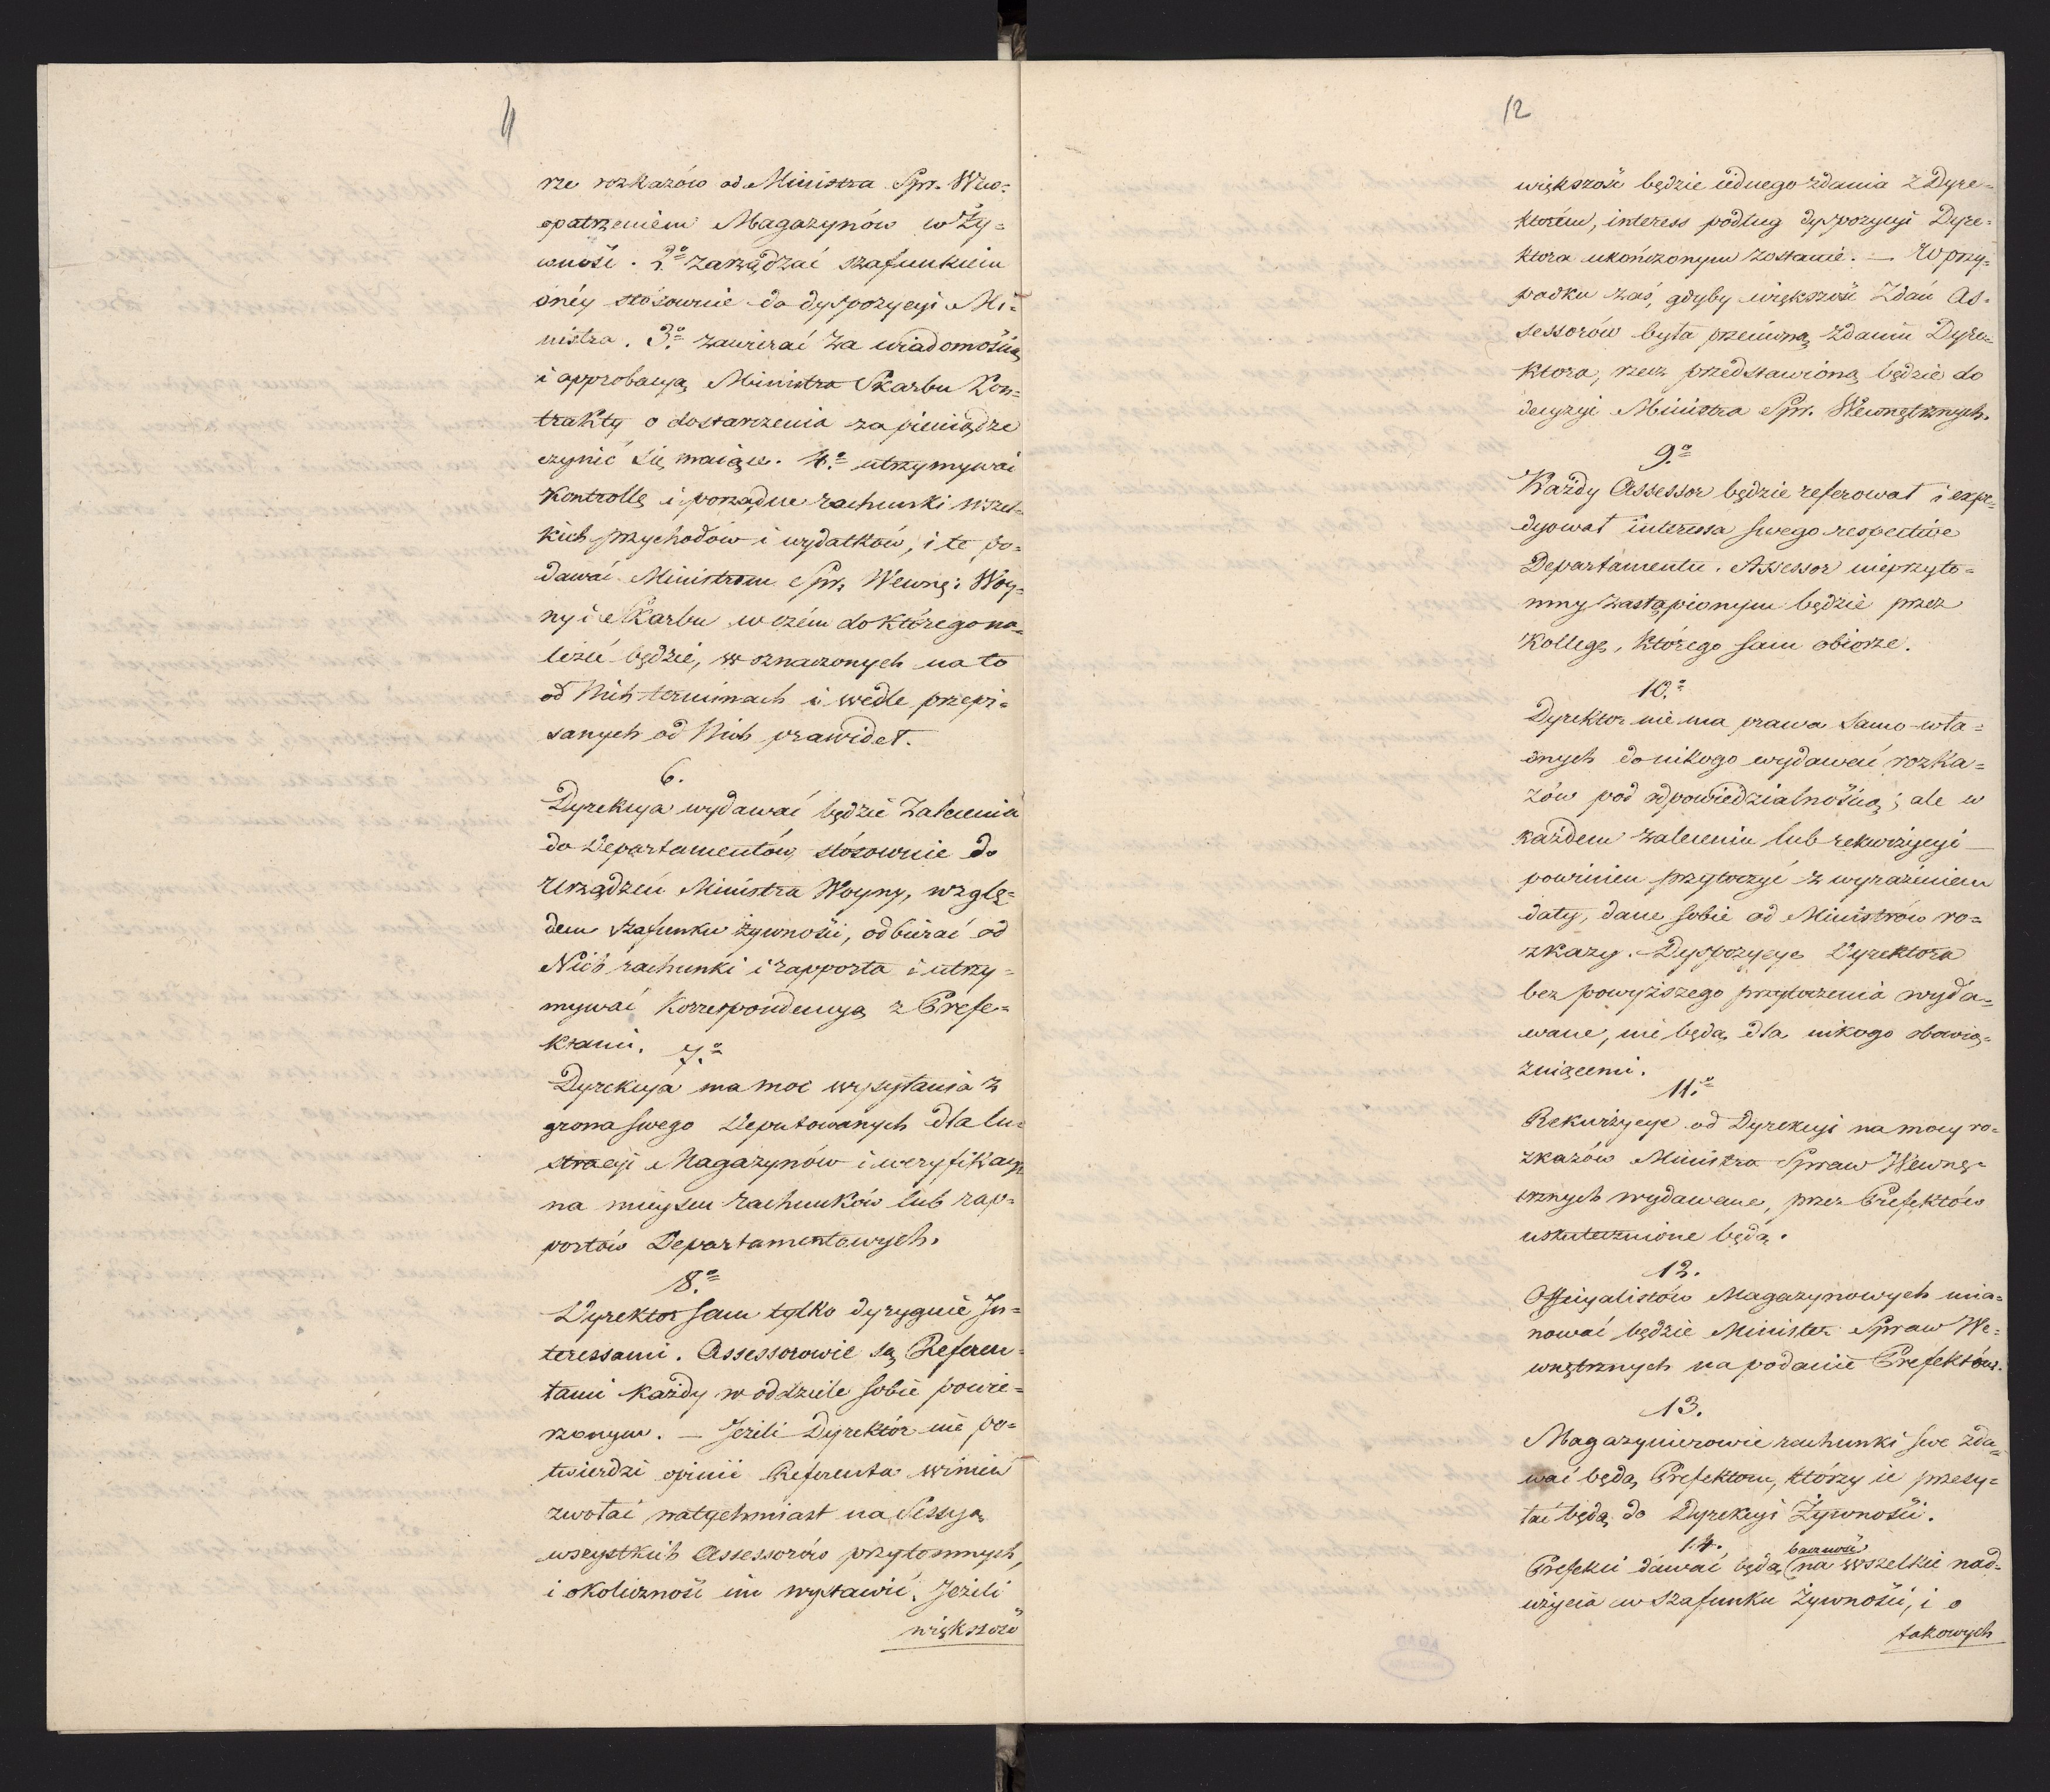 11
rze rozkazów od Ministra Spr. Wew.
opatrzeniem Magazynów w Ży=
wność. 2º zarządzać szafunkiem
onéy stósownie do dyspozycyi Mi=
nistra. 3º zawierać za wiadomością
i approbacyą Ministra Skarbu Kon=
trakty o dostarczenia za pieniądze
czynić się maiące. 4º utrzymywać
Kontrollę i porządne rachunki wszel=
kich przychodów i wydatków, i te po=
dawać Ministrom Spr. Wewnę: Woy=
ny i Skarbu w czém do którego na=
leżeć będzie, w oznaczonych na to
od Nich terminach i wedle przepi=
sanych od Nich prawideł.
6.
Dyrekcya wydawać będzie Zalecenia
do Departamentów stósownie do
Urządzeń Ministra Woyny, wzglę=
dem szafunku żywności, odbierać od
Nich rachunki i rapporta i utrzy=
mywać Korrespondencyą z Prefe=
ktami.
7º
Dyrekcya ma moc wysyłania z
grona swego Deputowanych dla lu=
stracyi Magazynów i weryfikacyi
na mieyscu rachunków lub rap=
portów Departamentowych.
8º
Dyrektor sam tylko dyryguie In=
teressami. Assessorowie są Referen=
tami każdy w oddziele sobie powie=
rzonym. — Jeżeli Dyrektór nie po=
twierdzi opinii Referenta winien
zwołać natychmiast na Sessyą
wszystkich Assessorów przytomnych,
i okoliczność im wystawić. Jeżeli
większość
12
większość będzie iednego zdania z Dyre=
ktorém, interess podług dyspozycyi Dyre=
ktora ukończonym zostanie. — W przy=
padku zaś, gdyby większość Zdań As=
sessorów była przeciwną zdaniu Dyre=
ktora, rzecz przedstawioną będzie do
decyzyi Ministra Spr. Wewnętrznych.
9º
Każdy Assessor będzie referował i expe=
dyował interessa swego respective
Departamentu. Assessor nieprzyto=
mny zastąpionym będzie przez
Kollegę, którego sam obierze.
10º
Dyrektor nie ma prawa samo-wła=
dnych do nikogo wydawać rozka=
zów pod odpowiedzialnością; ale w
każdem zaleceniu lub rekwizycyi —
powinien przytoczyć z wyrażeniem
daty, dane sobie od Ministrów ro=
zkazy. Dyspozycye Dyrektora
bez powyższego przytoczenia wyda=
wane, nie będą dla nikogo obowią=
zuiącemi.
11º
Rekwizycye od Dyrekcyi na mocy ro=
zkazów Ministra Spraw Wewnę=
trznych wydawane, przez Prefektów
uskutecznione będą.
12.
Officyalistów Magazynowych mia=
nować będzie Minister Spraw We=
wnętrznych na podanie Prefektów.
13.
Magazynierowie rachunki swe zda=
wać będą Prefektom, którzy ie przesy=
łać będą do Dyrekcyi Żywności.
14.
baczność
Prefekci dawać będą na wszelkie nad=
użycia w szafunku Żywności, i o
takowych